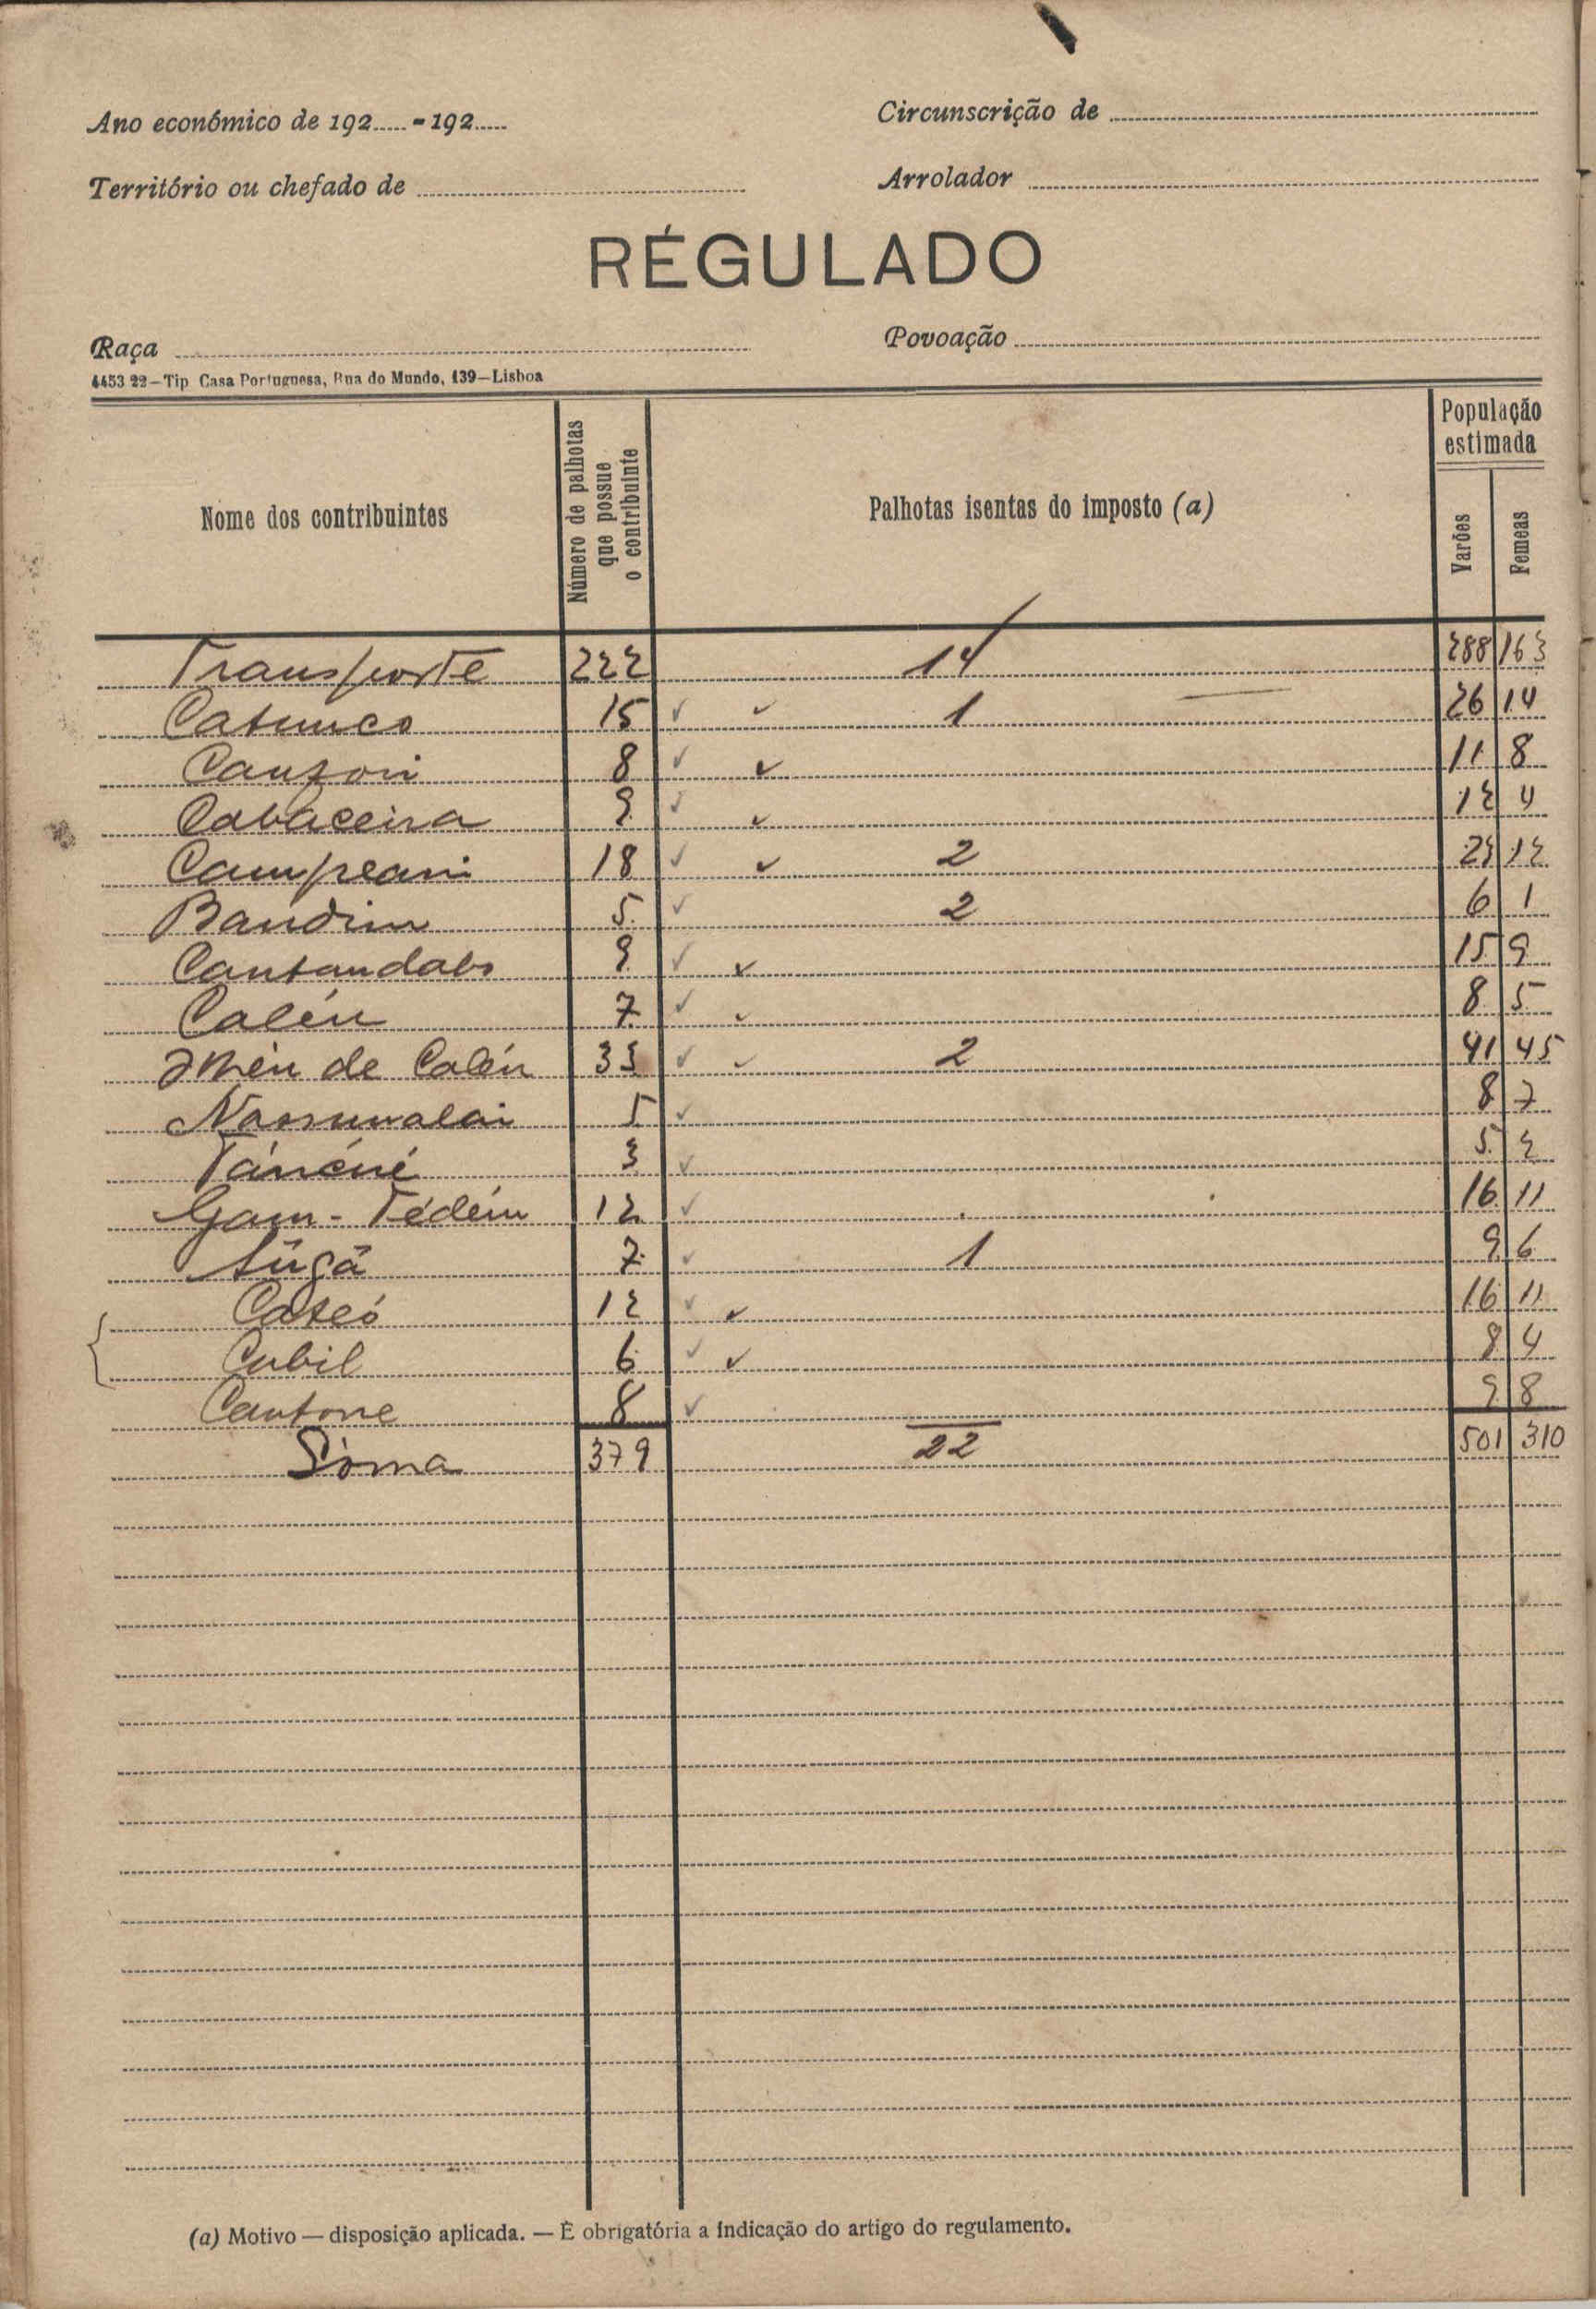 Ano económico de 192..... - 192.....
Circunscrição de
Território ou chefado de
Arrolador
RÉGULADO
Raça
Povoação
4453 22—Tip Casa Portuguesa, Rua do Mundo, 139—Lisboa
Nome dos contribuintes
Número de palhotas
que possue
o contribuinte
Palhotas isentas do imposto (a)
População
estimada
Varões
Femeas
Transporte 222 14 288 163
Catunco 15 ✓ ✓ 1 26 14
Canfori 8 ✓ ✓ 11 8
Cabaceira 9 ✓ ✓ 12 4
Campeani 18 ✓ ✓ 2 23 12
Bandim 5 ✓ 2 6 1
Cantandabo 9 ✓ ✓ 15 9
Caléu 7 ✓ ✓ 8 5
de Caléu 33 ✓ ✓ 2 41 45
Nassumalai 5 ✓ 8 7
Táncúé 3 ✓ 5 2
Gam-Tédéin 12 ✓ 16 11
7 ✓ 1 9 6
Cateó 12 ✓ ✓ 16 11
Cubil 6 ✓ ✓ 8 4
Cantone 8 ✓ 9 8
Sòma 379 22 501 310
(a) Motivo — disposição aplicada. — É obrigatória a indicação do artigo do regulamento.